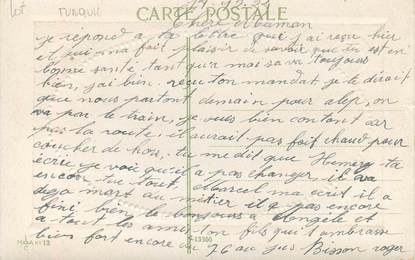 Lot Turquie
CARTE POSTALE
Chère Maman
je repond a ta lettre que j'ai reçu hier
et qui ma fait plaisir de savoir que tu est en
bonne santé tant qu'a moi sa va toujours
bien, j'ai bien reçu ton mandat je te dirait
que nous partont demain pour alep, on
va par le train, je suis bien contant car
pas la route, il aurait pas fait chaud pour
coucher de hors, tu me dit que ta
ecrie je voi qu'il a pas changer, il va
encor tu tout. Marcel ma ecrit il a
deja marre du métier il a pas encore
fini bien le bonjours a Angèle et
a tout les amis ton fils qui t'embrasse
bien fort encore 76 au jus Bisson roger
13300